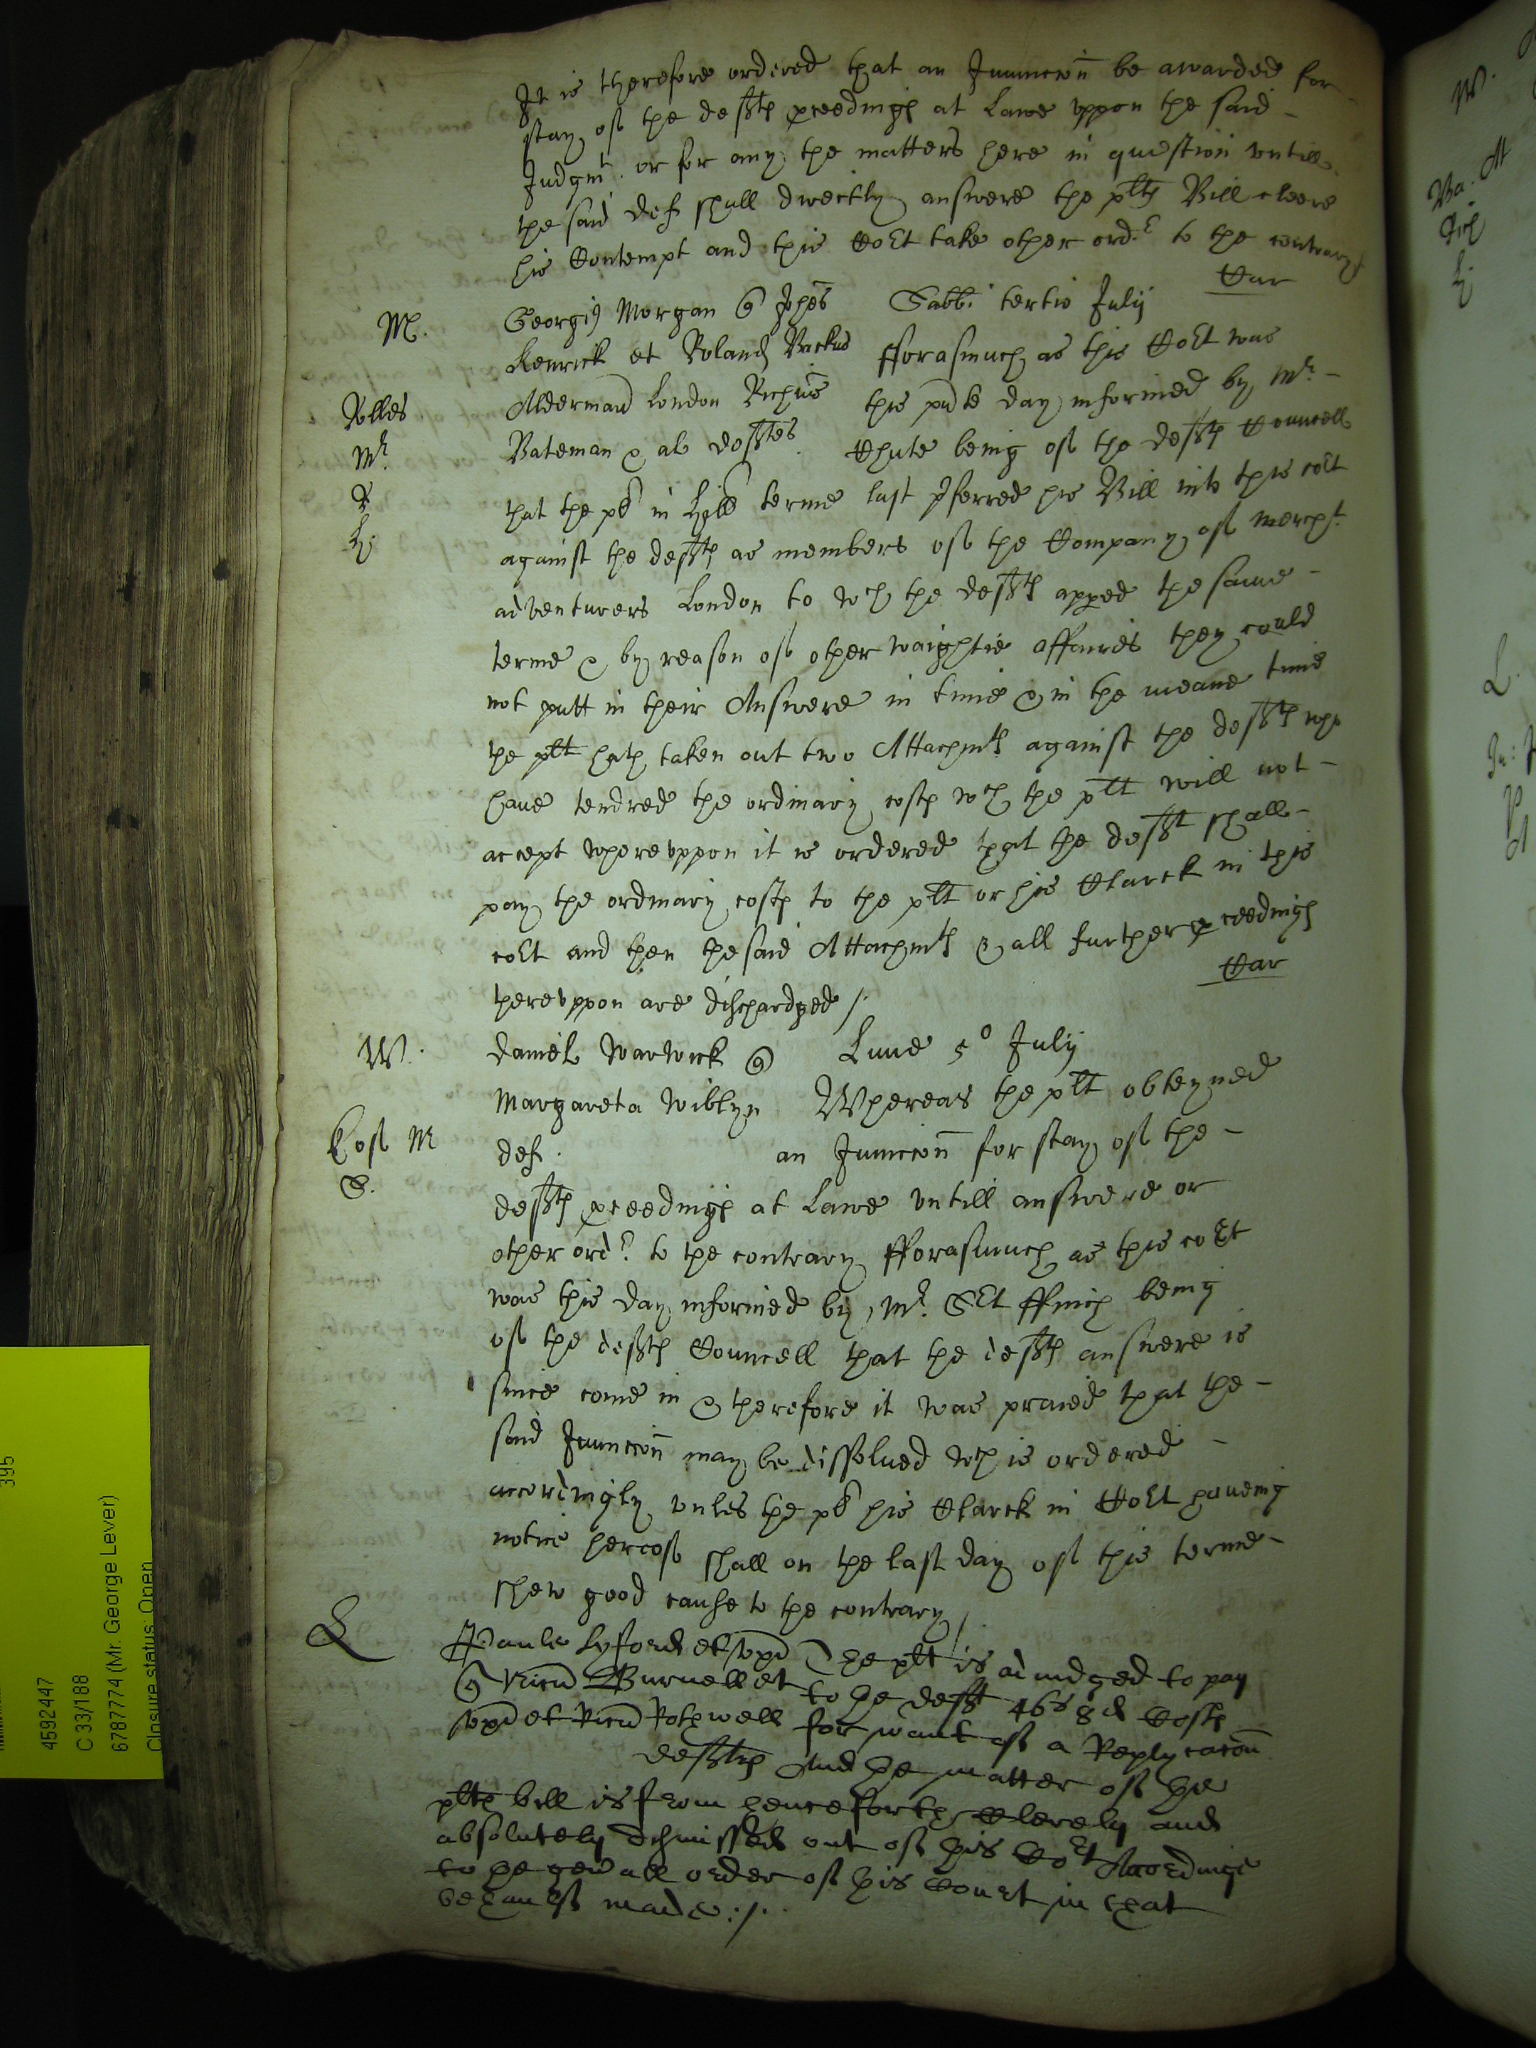 It is therefore ordered that an Iniunccoñ be awarded for
stay of the defts pceedings at Lawe vppon the said
Iudgmt. or for any the matters here in question vntill
the said def shall directly answere the plts Bill cleere
his Contempt and this Cort take other ordr to the contrary
Car
M. Georgius Morgan Johes Sabbi tertio Julij
Kenrick et Roland Backus fforasmuch as this Cort was
Rolles Alderman London Richus this pnte day informed by Mr
Mr Bateman & al defts Chute being of the defts Councell
that the pl in Hill terme last pferred his Bill into this cort
against the defts as members of the Company of Mercht
adventurers London to wch the defts apped the same
terme & by reason of other waightie affaires they could
not putt in their Answere in time & in the meane time
the plt hath taken out two Attachmts against the defts who
haue tendred the ordinary costs wch the plt will not
accept wherevppon it is ordered that the deft shall
pay the ordinary costs to the plt or his Clarck in this
cort and then the said Attachmts & all further pceedings
Car
therevppon are dischardged /.
W. Daniel Warwick Lune 5o July
Margareta Wiblyn Whereas the plt obteyned
def. an Iniunccoñ for stay of the
S.
defts pceedings at Lawe vntill answere or
other ordr to the contrary fforasmuch as this cort
was this day informed by Mr Srt ffinch being
of the defts Councell that the defts answere is
since come in & therefore it was praied that the
said Iniunccoñ may be dissolued wch is ordered
accordingly vnles the pl his Clarck in Cort haueing
notice hereof shall on the last day of this terme
shew good cause to the contrary /
L Paule Lyford et uxor The plt is adiudged to pay
Burnell et to the deft 46s 8d Costs
uxor et Ricus Rothwell for want of a Replycacoñ
defts And the matter of the
plts bill is from henceforth clerely and
absolutely dismissed out of this Cort Accordinge
to the genall order of this Court in that
behaulf made :/.
4592447
C 33/188
6787774 (Mr. George Lever)
Closure status: Open
395